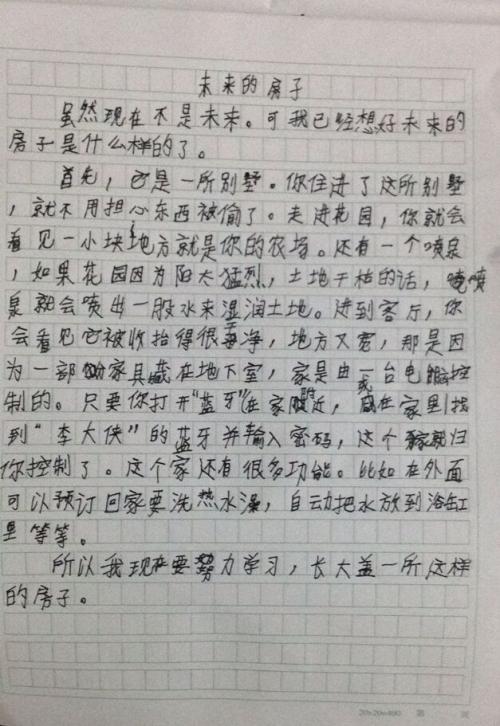 未来的房子
虽然现在不是未来。可我已经想好未来的
房子是什么样的了。
首先，它是一所别墅。你住进了这所别墅
，就不用担心东西被偷了。走进花园，你就会
看见一小块地方就是你的农场。还有一个喷泉
，如果花园因为阳太猛烈，土地干枯的话，喷
泉就会喷出一股水来湿润土地。进到客厅，你
会看见它被收拾得很干净，地方又宽，那是因
为一部份家具藏在地下室，家是由一台电脑控
制的。只要你打开“蓝牙”在家附近，或在家里找
到“李大侠”的蓝牙并输入密码，这个家就归
你控制了。这个家还有很多功能。比如在外面
可以预订回家要洗热水澡，自动把水放到浴缸
里等等。
所以我现在要努力学习，长大盖一所这样
的房子。
20x20=400 第 页